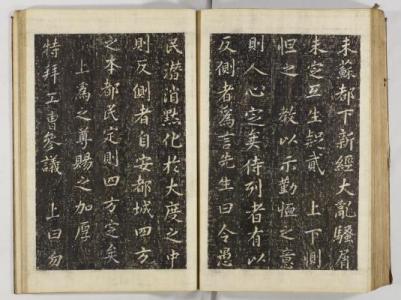 未蘇都下新經大亂騷屑
未定互生疑貳 上下惻
怛之 教以示勤恤之意
則人心定矣侍列者有以
反側者為言先生曰令愚
民潜消黙化於大度之中
則反側者自安都城四方
之本都民定則四方定矣
上為之尊賜之加厚
特拜工曹參議 上曰勿